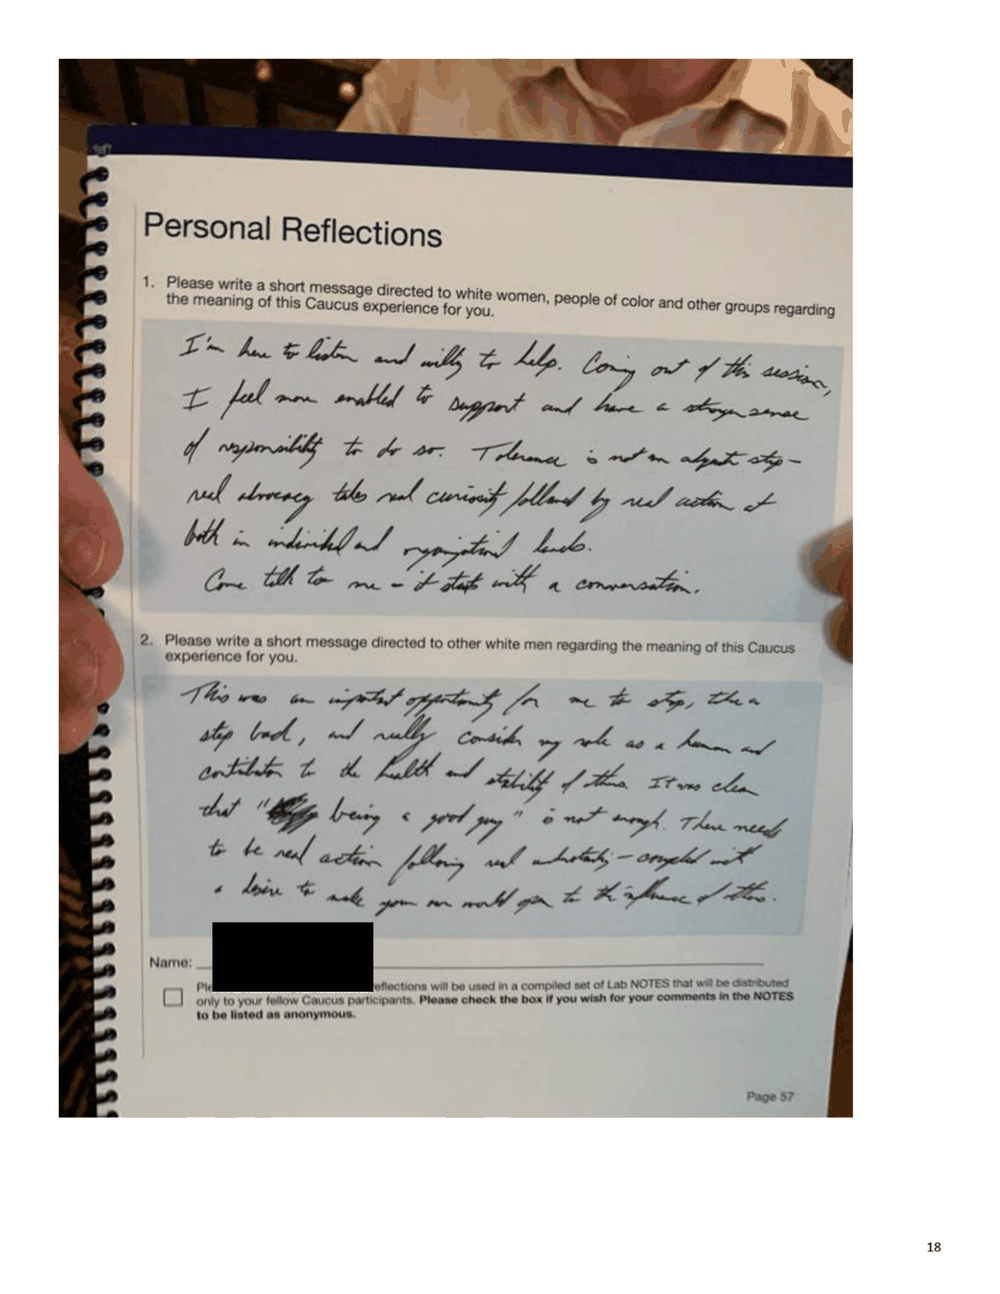 Personal Reflections
1. Please write a short message directed to white women, people of color and other groups regarding
the meaning of this Caucus experience for you.
I'm here to listen and willing to help. Coming out of this session,
I feel more enabled to support and have a stronger sense
of responsibility to do so. Tolerance is not an step-
real advocacy takes real curiosity followed by real action at
both in individual and organizational levels.
Come talk to me - it starts with a conversation.
2. Please write a short message directed to other white men regarding the meaning of this Caucus
experience for you.
This was an important opportunity for me to stop, take a
step back, and really consider my role as a human and
contributor to the health and stability of others. It was clear
that " being a good guy" is not enough. There needs
to be real action following real understanding - coupled with
a desire to make your own world open to the influence of others.
Name:
Ple eflections will be used in a compiled set of Lab NOTES that will be distributed
only to your fellow Caucus participants. Please check the box if you wish for your comments in the NOTES
to be listed as anonymous.
Page 57
18